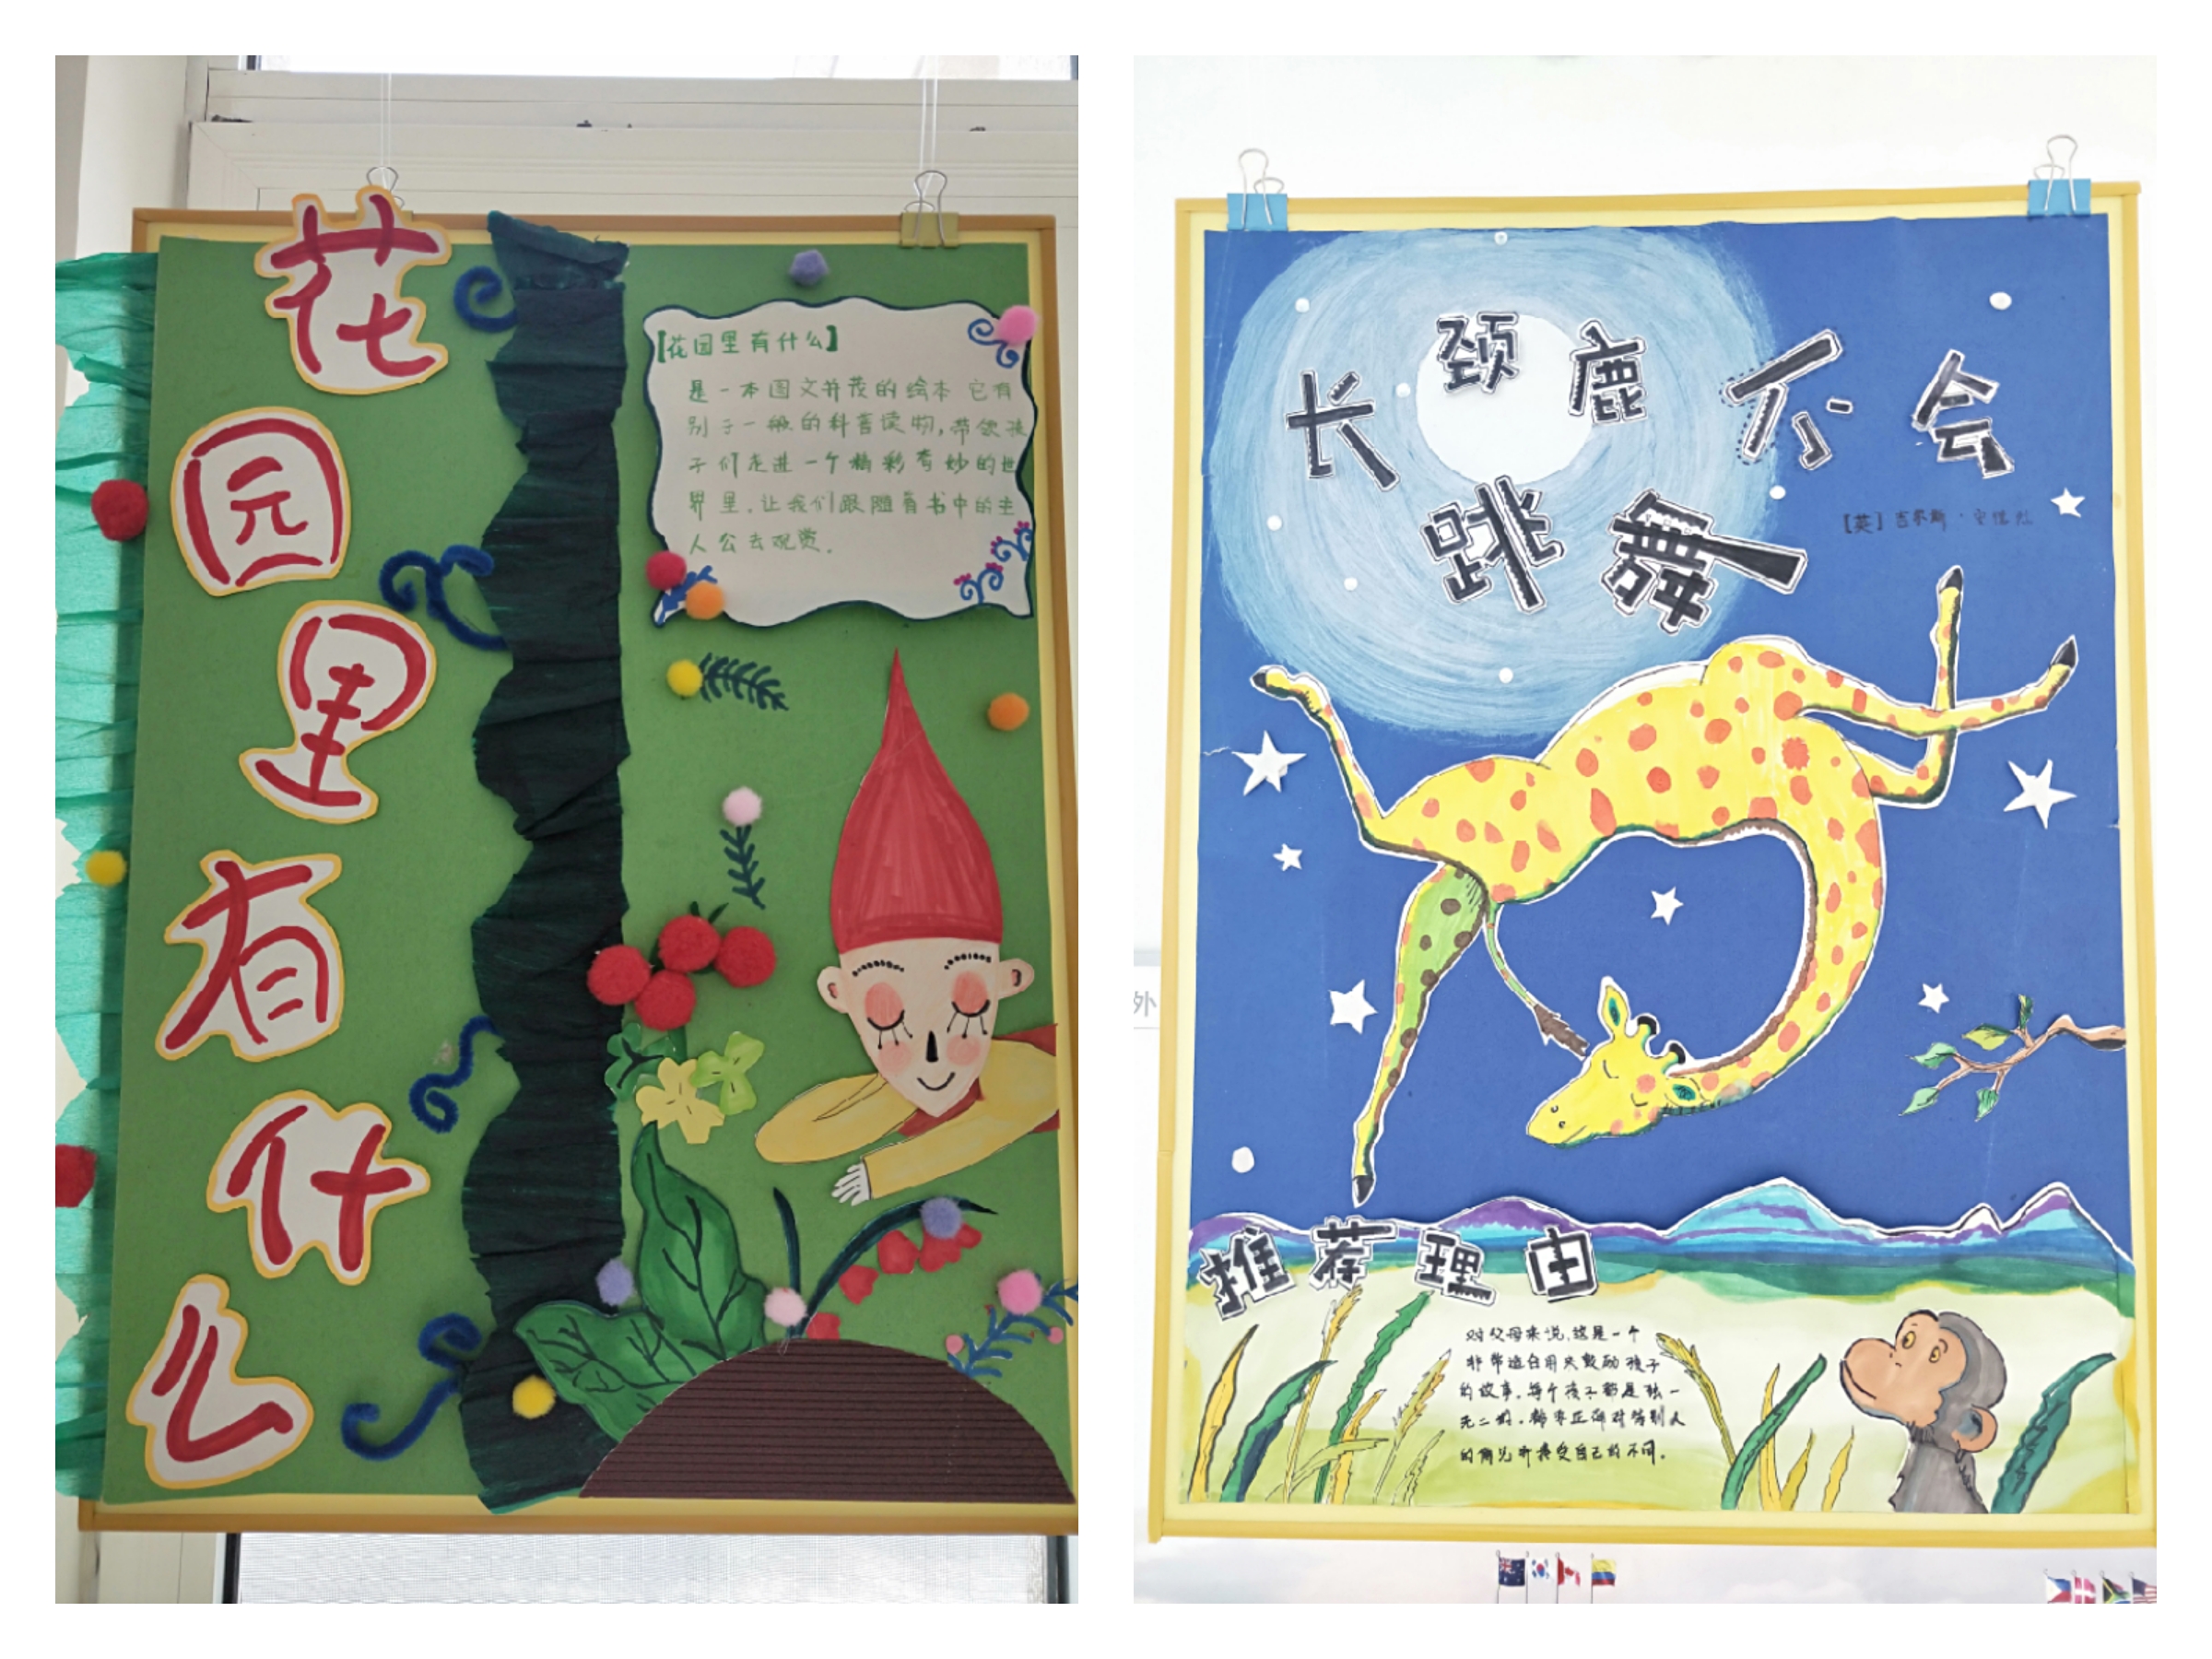 花园里有什么
【花园里有什么】
是一本图文并茂的绘本 它有
别于一般的科普读物,带领孩
子们走进一个精彩奇妙的世
界里.让我们跟随着书中的主
人公去观赏.
长颈鹿不会
跳舞
[英]吉尔斯·安德烈
外
推荐理由
对父母来说,这是一个
非常适合用来鼓励孩子
的故事.每个孩子都是独一
无二的.都要正确对待别人
的意见并接受自己的不同.